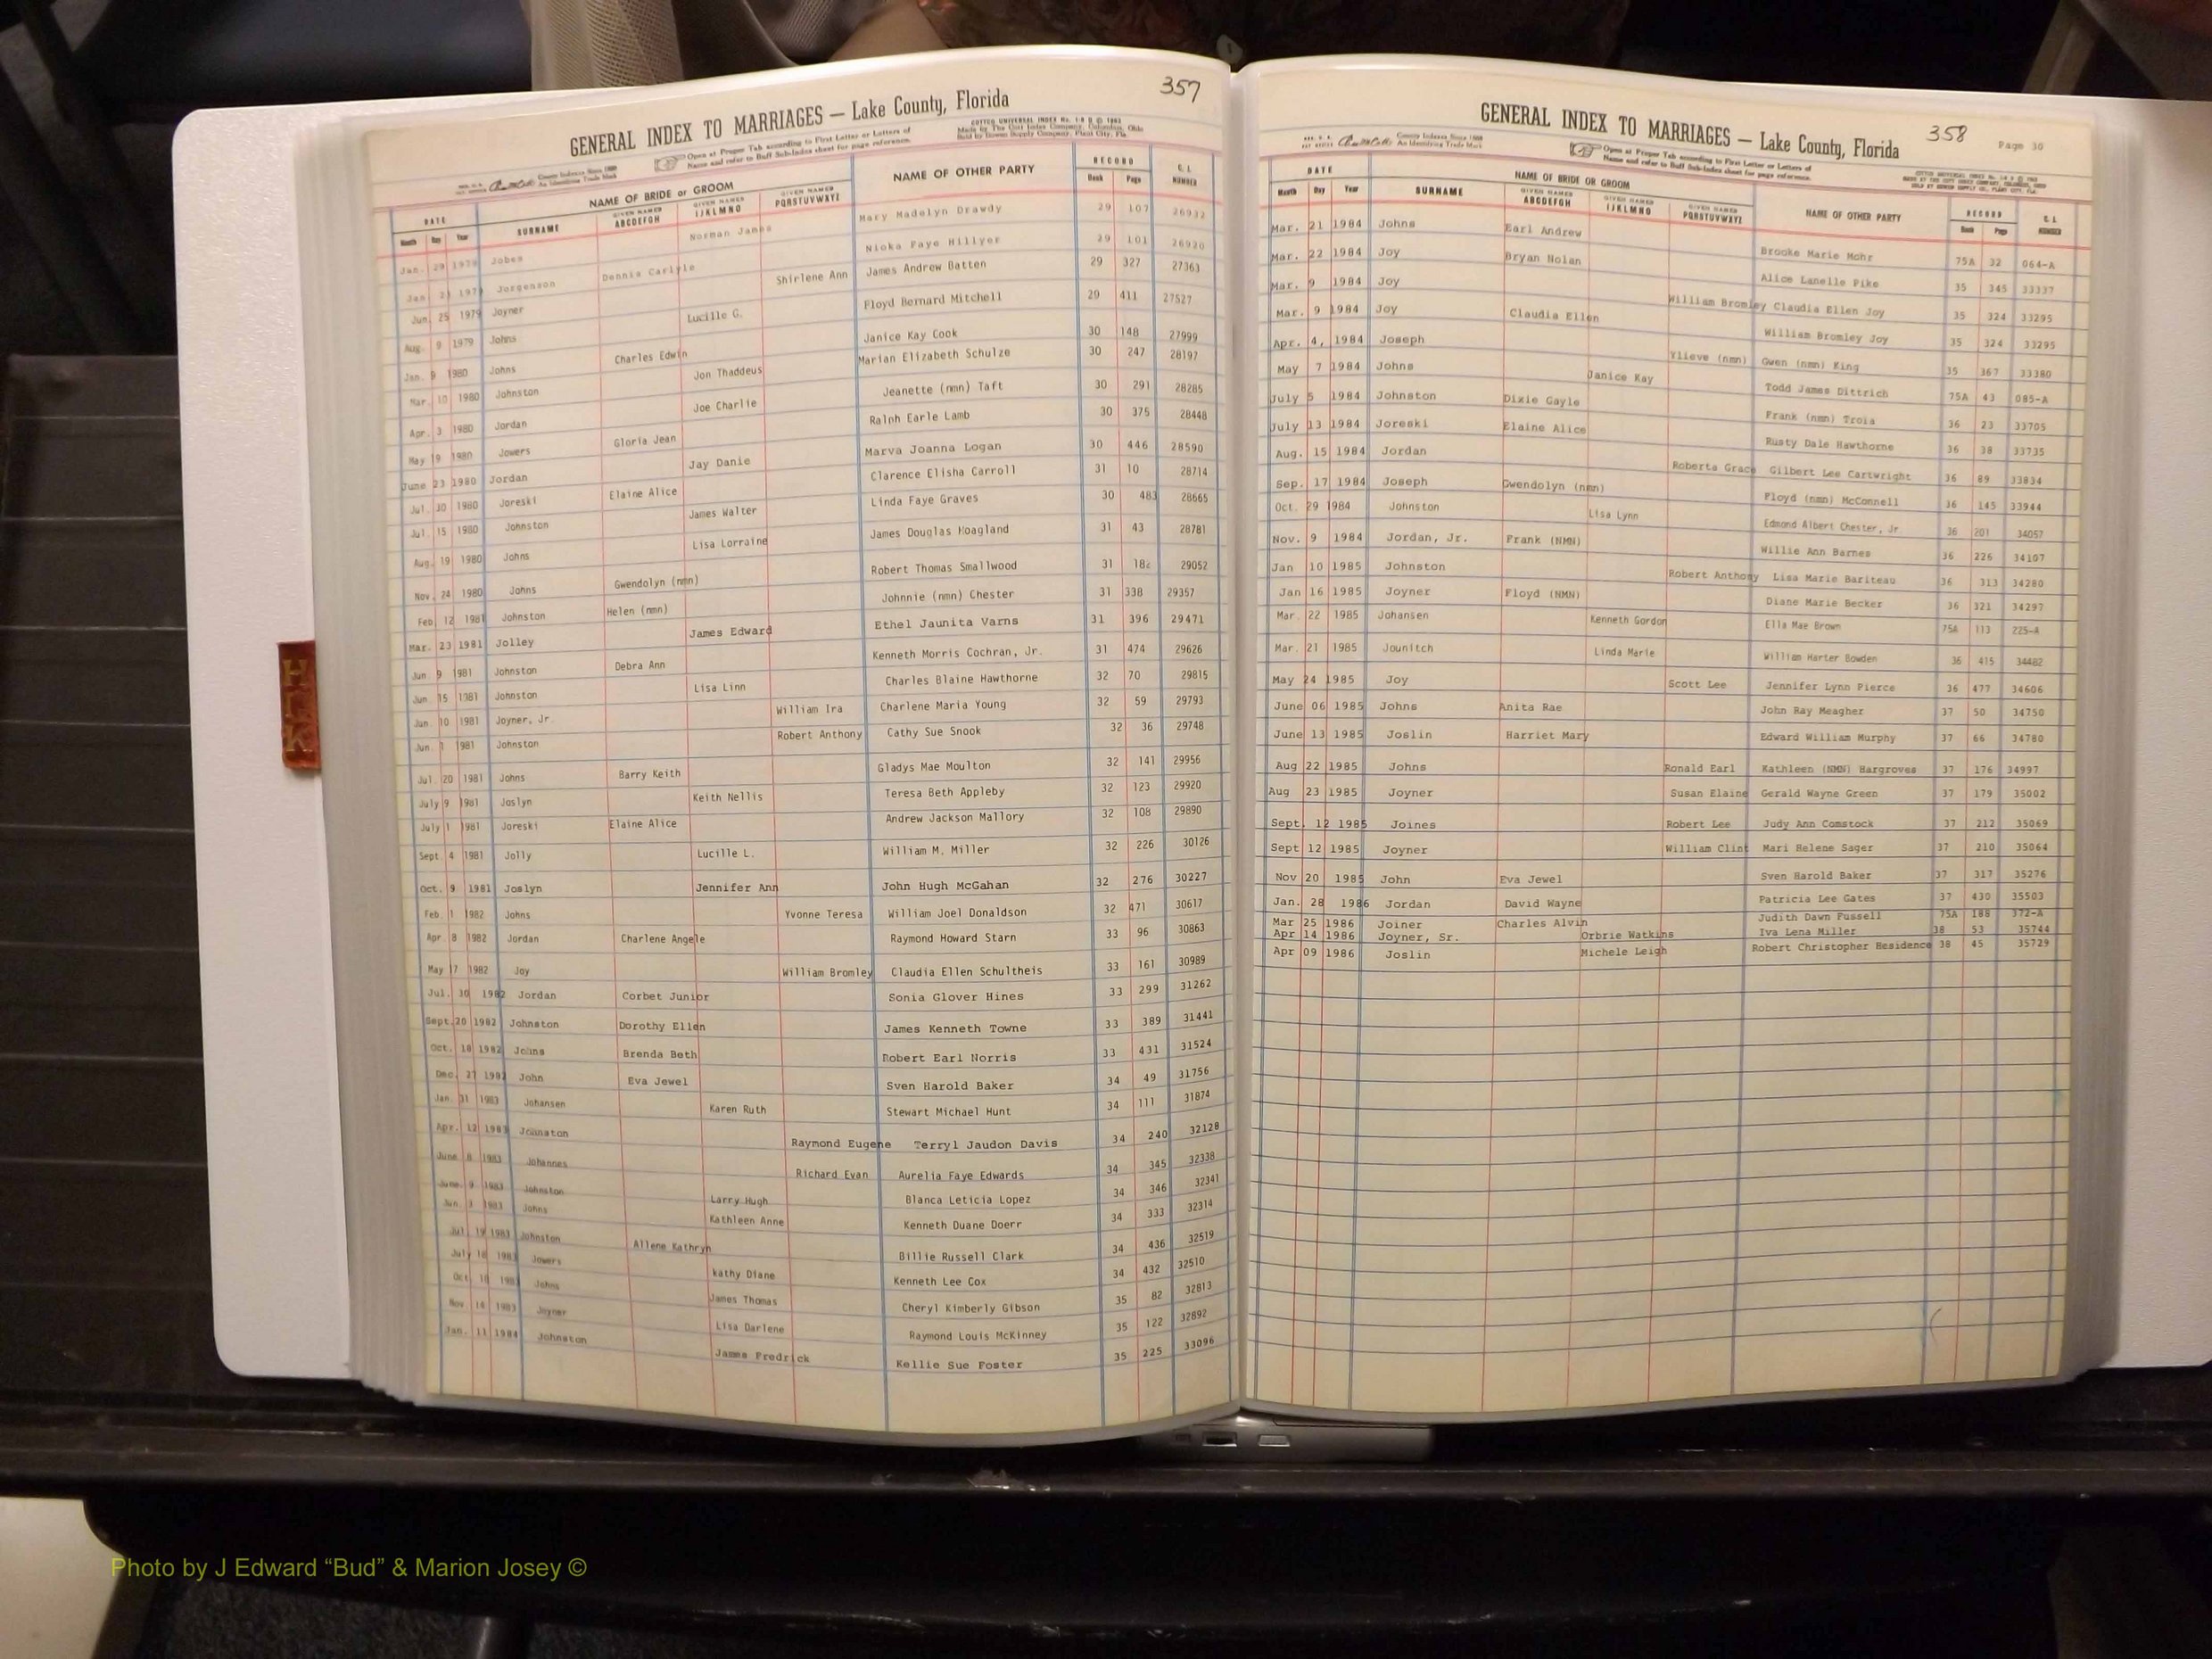 357
GENERAL INDEX TO MARRIAGES — Lake County, Florida
Open at Proper Tab according to First Letter or Letters of
Name and refer to Buff Sub-Index sheet for page reference.
DATE NAME OF BRIDE or GROOM NAME OF OTHER PARTY RECORD
Month Day Year SURNAME GIVEN NAMES ABCDEFGH GIVEN NAMES IJKLMNO GIVEN NAMES PQRSTUVWXYZ Book Page NUMBER
Jan. 29 Jobes Norman James Mary Madelyn Drawdy 29 107
Jan Jorgenson Dennis Carlyle Nioka Faye Hillyer 29 101
Jun. 25 1979 Joyner Shirlene Ann James Andrew Batten 29 327 27363
Aug. 9 1979 Johns Lucille G. Floyd Bernard Mitchell 29 411 27527
Jan. 9 1980 Johns Charles Edwin Janice Kay Cook 30 148 27999
Mar. 10 1980 Johnston Jon Thaddeus Marian Elizabeth Schulze 30 247 28197
Apr. 3 1980 Jordan Joe Charlie Jeanette (nmn) Taft 30 291 28285
May 19 1980 Jowers Gloria Jean Ralph Earle Lamb 30 375 28448
June 23 1980 Jordan Jay Danie Marva Joanna Logan 30 446 28590
Jul. 30 1980 Joreski Elaine Alice Clarence Elisha Carroll 31 10 28714
Jul. 15 1980 Johnston James Walter Linda Faye Graves 30 483 28665
Aug. 19 1980 Johns Lisa Lorraine James Douglas Hoagland 31 43 28781
Nov. 24 1980 Johns Gwendolyn (nmn) Robert Thomas Smallwood 31 182 29052
Feb 12 1981 Johnston Helen (nmn) Johnnie (nmn) Chester 31 338 29357
Mar. 23 1981 Jolley James Edward Ethel Jaunita Varns 31 396 29471
Jun. 9 1981 Johnston Debra Ann Kenneth Morris Cochran, Jr. 31 474 29626
Jun 15 1981 Johnston Lisa Linn Charles Blaine Hawthorne 32 70 29815
Jun. 10 1981 Joyner, Jr. William Ira Charlene Maria Young 32 59 29793
Jun. 1 1981 Johnston Robert Anthony Cathy Sue Snook 32 36 29748
Jul. 20 1981 Johns Barry Keith Gladys Mae Moulton 32 141 29956
July 9 1981 Joslyn Keith Nellis Teresa Beth Appleby 32 123 29920
July 1 1981 Joreski Elaine Alice Andrew Jackson Mallory 32 108 29890
Sept. 4 1981 Jolly Lucille L. William M. Miller 32 226 30126
Oct. 9 1981 Joslyn Jennifer Ann John Hugh McGahan 32 276 30227
Feb. 1 1982 Johns Yvonne Teresa William Joel Donaldson 32 471 30617
Apr. 8 1982 Jordan Charlene Angele Raymond Howard Starn 33 96 30863
May 17 1982 Joy William Bromley Claudia Ellen Schultheis 33 161 30989
Jul. 30 1982 Jordan Corbet Junior Sonia Glover Hines 33 299 31262
Sept.20 1982 Johnston Dorothy Ellen James Kenneth Towne 33 389 31441
Oct. 18 1982 Johns Brenda Beth Robert Earl Norris 33 431 31524
Dec. 27 1982 John Eva Jewel Sven Harold Baker 34 49 31756
Jan. 31 1983 Johansen Karen Ruth Stewart Michael Hunt 34 111 31874
Apr. 12 1983 Johnston Raymond Eugene Terryl Jaudon Davis 34 240 32128
June 8 1983 Johannes Richard Evan Aurelia Faye Edwards 34 345 32338
June. 9 1983 Johnston Larry Hugh Blanca Leticia Lopez 34 346 32341
Jun. 3 1983 Johns Kathleen Anne Kenneth Duane Doerr 34 333 32314
Jul 19 1983 Johnston Allene Kathryn Billie Russell Clark 34 436 32519
July 18 1983 Jowers kathy Diane Kenneth Lee Cox 34 432 32510
Oct 1983 Johns James Thomas Cheryl Kimberly Gibson 35 82 32813
Nov 14 1983 Joyner Lisa Darlene Raymond Louis McKinney 35 122 32892
Jan. 11 1984 Johnston James Fredrick Kellie Sue Foster 35 225 33096
358 Page 30
GENERAL INDEX TO MARRIAGES — Lake County, Florida
Open at Proper Tab according to First Letter or Letters of
Name and refer to Buff Sub-Index sheet for page reference.
DATE NAME OF BRIDE OR GROOM RECORD
Month Day Year SURNAME GIVEN NAMES ABCDEFGH GIVEN NAMES IJKLMNO GIVEN NAMES PQRSTUVWXYZ NAME OF OTHER PARTY Book Page NUMBER
Mar. 21 1984 Johns Earl Andrew Brooke Marie Mohr 75A 32 064-A
Mar. 22 1984 Joy Bryan Nolan Alice Lanelle Pike 35 345 33337
Mar. 9 1984 Joy William Bromley Claudia Ellen Joy 35 324 33295
Mar. 9 1984 Joy Claudia Ellen William Bromley Joy 35 324 33295
Apr. 4, 1984 Joseph Ylieve (nmn) Gwen (nmn) King 35 367 33380
May 7 1984 Johns Janice Kay Todd James Dittrich 75A 43 085-A
July 5 1984 Johnston Dixie Gayle Frank (nmn) Troia 36 23 33705
July 13 1984 Joreski Elaine Alice Rusty Dale Hawthorne 36 38 33735
Aug. 15 1984 Jordan Roberta Grace Gilbert Lee Cartwright 36 89 33834
Sep. 17 1984 Joseph Gwendolyn (nmn) Floyd (nmn) McConnell 36 145 33944
Oct. 29 1984 Johnston Lisa Lynn Edmond Albert Chester, Jr 36 201 34057
Nov. 9 1984 Jordan, Jr. Frank (NMN) Willie Ann Barnes 36 226 34107
Jan 10 1985 Johnston Robert Anthony Lisa Marie Bariteau 36 313 34280
Jan 16 1985 Joyner Floyd (NMN) Diane Marie Becker 36 321 34297
Mar. 22 1985 Johansen Kenneth Gordon Ella Mae Brown 75A 113 225-A
Mar. 21 1985 Jounitch Linda Marie William Harter Bowden 36 415 34482
May 24 1985 Joy Scott Lee Jennifer Lynn Pierce 36 477 34606
June 06 1985 Johns Anita Rae John Ray Meagher 37 50 34750
June 13 1985 Joslin Harriet Mary Edward William Murphy 37 66 34780
Aug 22 1985 Johns Ronald Earl Kathleen (NMN) Hargroves 37 176 34997
Aug 23 1985 Joyner Susan Elaine Gerald Wayne Green 37 179 35002
Sept. 12 1985 Joines Robert Lee Judy Ann Comstock 37 212 35069
Sept 12 1985 Joyner William Clint Mari Helene Sager 37 210 35064
Nov 20 1985 John Eva Jewel Sven Harold Baker 37 317 35276
Jan. 28 1986 Jordan David Wayne Patricia Lee Gates 37 430 35503
Mar 25 1986 Joiner Charles Alvin Judith Dawn Fussell 75A 188 372-A
Apr 14 1986 Joyner, Sr. Orbrie Watkins Iva Lena Miller 38 53 35744
Apr 09 1986 Joslin Michele Leigh Robert Christopher Besidence 38 45 35729
H
I
K
Photo by J Edward “Bud” & Marion Josey ©